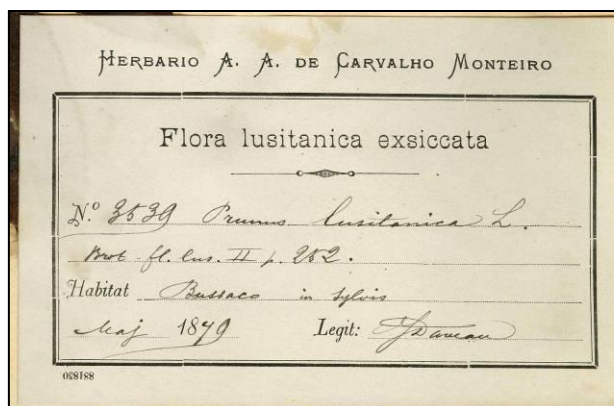 HERBARIO A. A. DE CARVALHO MONTEIRO
Flora lusitanica exsiccata
N.º 3539 Prunus lusitanica L.
Brot. fl. lus. II p. 252.
Habitat Bussaco in sylvis
Maj 1879 Legit: J Daveau
881820